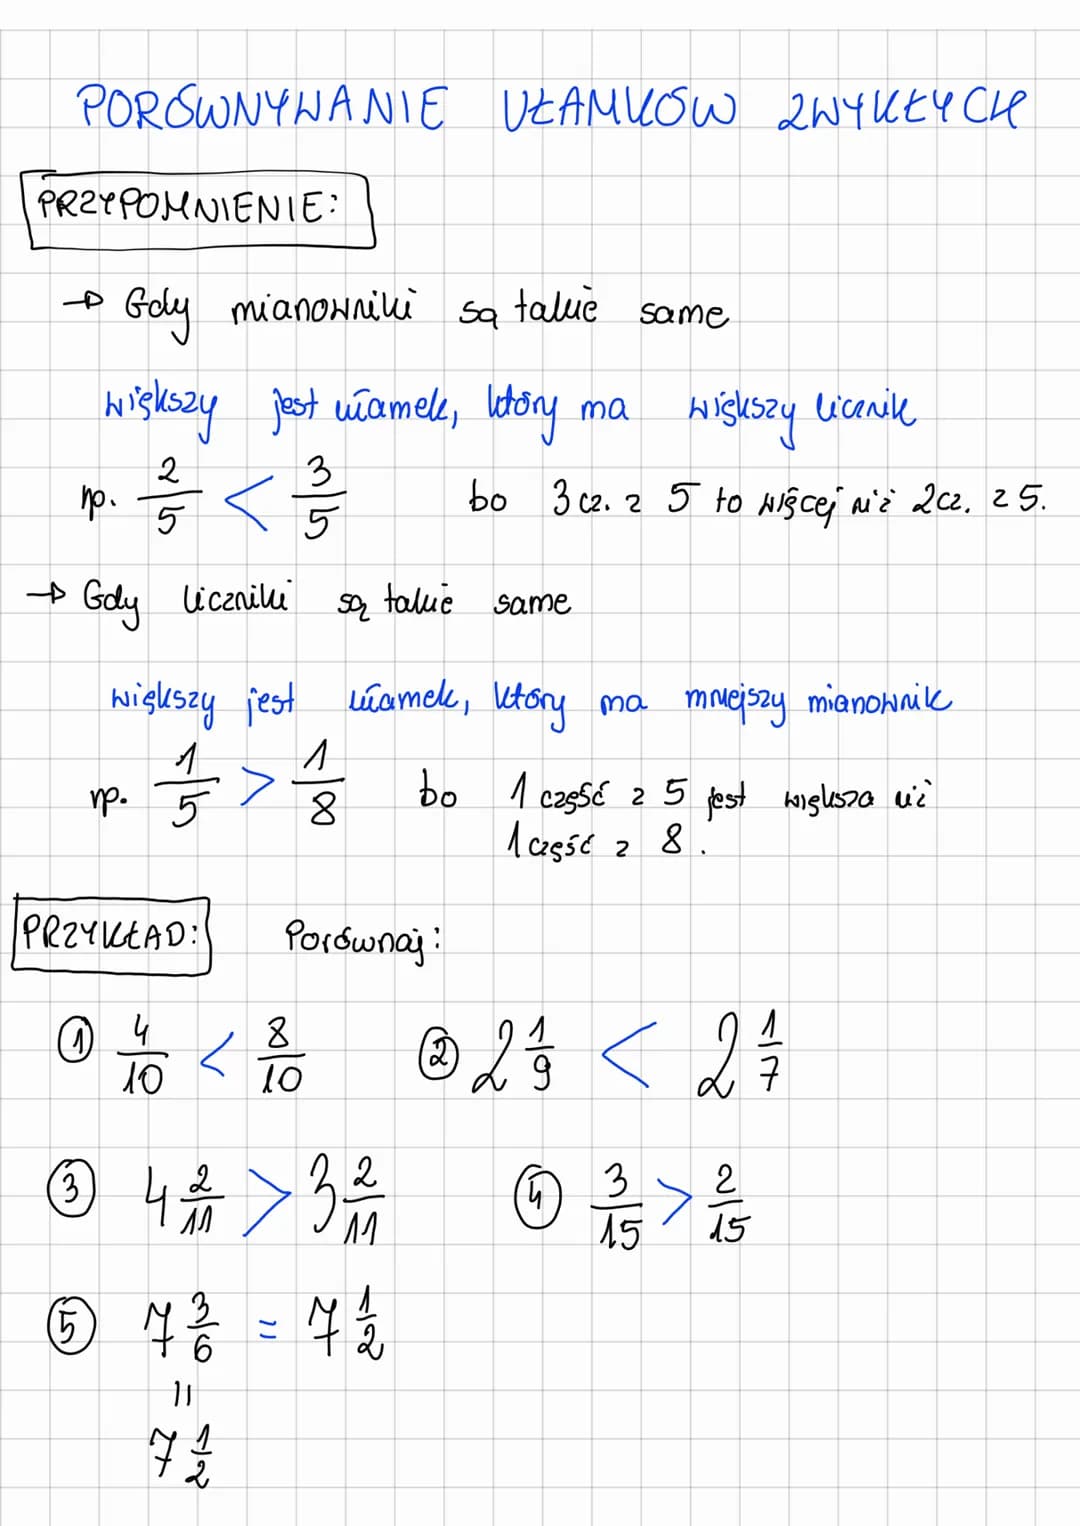 PORÓWNYWANIE UŁAMKÓW ZWYKŁYCH
PRZYPOMNIENIE:
→ Gdy mianowniki są takie same
większy jest ułamek, który ma większy licznik
np. 2/5 < 3/5 bo 3 cz. z 5 to więcej niż 2 cz. z 5.
→ Gdy liczniki są takie same
większy jest ułamek, który ma mniejszy mianownik
np. 1/5 > 1/8 bo 1 część z 5 jest większa niż
1 część z 8.
PRZYKŁAD: Porównaj:
① 4/10 < 8/10 ② 2 1/9 < 2 1/7
③ 4 2/11 > 3 2/11 ④ 3/15 > 2/15
⑤ 7 3/6 = 7 1/2
=
7 1/2